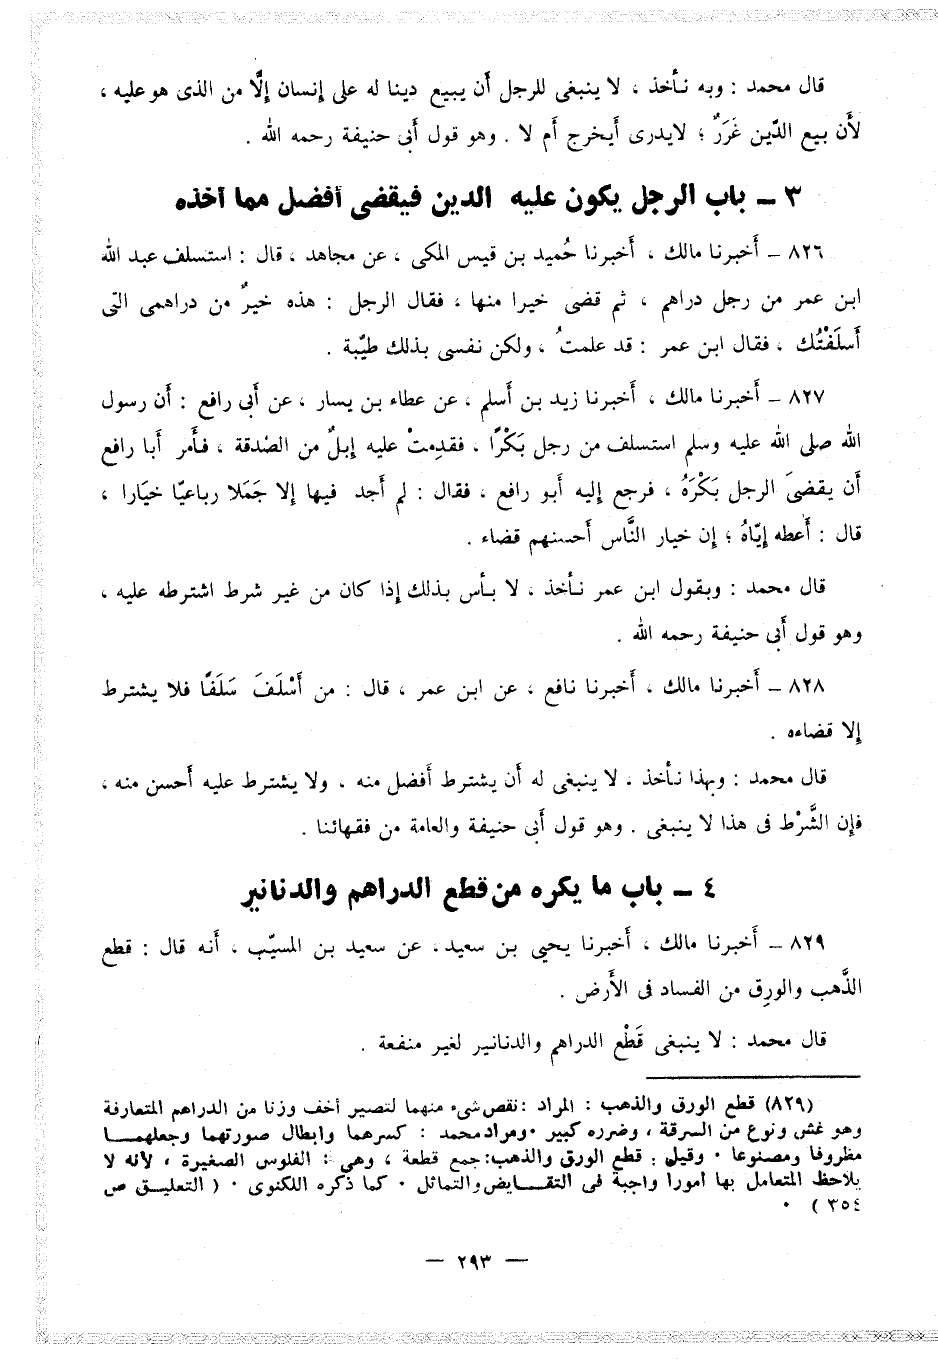 قال محمد : وبه نـأخذ ، لا ينبغى للرجل أن يبيع دينا له على إنسان إلَّا من الذى هو عليه ،
لأَن بيع الدّين غَرَرٌ ؛ لايدرى أَيخرج أم لا . وهو قول أبى حنيفة رحمه الله .
٣ ــ باب الرجل يكون عليه الدين فيقضى أفضل مما أخذه
٨٢٦ ــ أَخبرنا مالك ، أَخبرنا حُميد بن قيس المكى ، عن مجاهد ، قال : استسلف عبد الله
ابن عمر من رجل دراهم ، ثم قضى خيرا منها ، فقال الرجل : هذه خيرٌ من دراهمى التى
أَسلَفْتُك ، فقال ابن عمر : قد علمتُ ، ولكن نفسى بذلك طيّبة .
٨٢٧ ــ أَخبرنا مالك ، أَخبرنا زيد بن أَسلم ، عن عطاء بن يسار ، عن أبى رافع : أَن رسول
الله صلى الله عليه وسلم استسلف من رجل بَكْرًا ، فقدِمتْ عليه إبلٌ من الصْدقة ، فـأَمر أَبا رافع
أَن يقضىَ الرجل بَكْرَهُ ، فرجع إليه أَبو رافع ، فقال : لم أَجد فيها إلا جَمَلا رباعيّا خيَارا ،
قال : أَعطه إيّاهُ ؛ إن خيار النَّاس أَحسنهم قضاء .
قال محمد : وبقول ابن عمر نـأخذ ، لا بـأس بذلك إذا كان من غير شرط اشترطه عليه ،
وهو قول أبى حنيفة رحمه الله .
٨٢٨ ــ أَخبرنا مالك ، أَخبرنا نافع ، عن ابن عمر ، قال : من أَسْلَفَ سَلَفًا فلا يشترط
إلا قضاءه .
قال محمد : وبهذا نـأخذ ، لا ينبغى له أَن يشترط أَفضل منه ، ولا يشترط عليه أَحسن منه ،
فإن الشَّرْط فى هذا لا ينبغى . وهو قول أبى حنيفة والعامة من فقهائنا .
٤ ــ باب ما يكره من قطع الدراهم والدنانير
٨٢٩ ــ أَخبرنا مالك ، أَخبرنا يحيى بن سعيد ، عن سعيد بن المسيّب ، أَنه قال : قطع
الذَّهب والورِق من الفساد فى الأَرض .
قال محمد : لا ينبغى قَطْع الدراهم والدنانير لغير منفعة .
(٨٢٩) قطع الورق والذهب : المراد : نقص شىء منهما لتصير أخف وزنا من الدراهم المتعارفة
وهو غش ونوع من السرقة ، وضرره كبير ٠ ومراد محمد : كسرهما وابطال صورتهما وجعلهمـــا
مظروفا ومصنوعا ٠ وقيل : قطع الورق والذهب : جمع قطعة ، وهى : الفلوس الصغيرة ، لأنه لا
يلاحظ المتعامل بها أمورا واجبة فى التقــابض والتماثل ٠ كما ذكره اللكنوى ٠ ( التعليـق ص
٣٥٤ ) ٠
— ٢٩٣ —